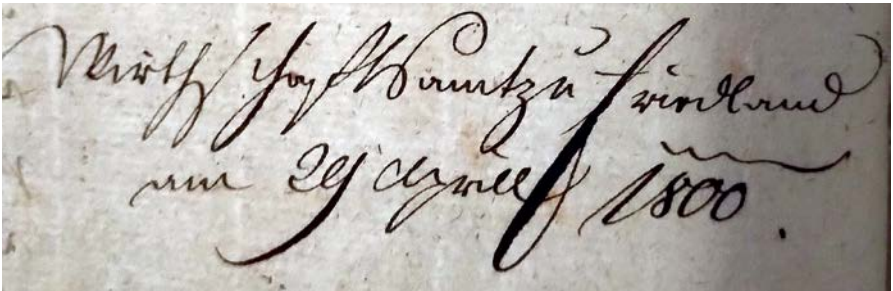 Wirthschaftsamt zu Friedland
am 29 Aprill 1800.